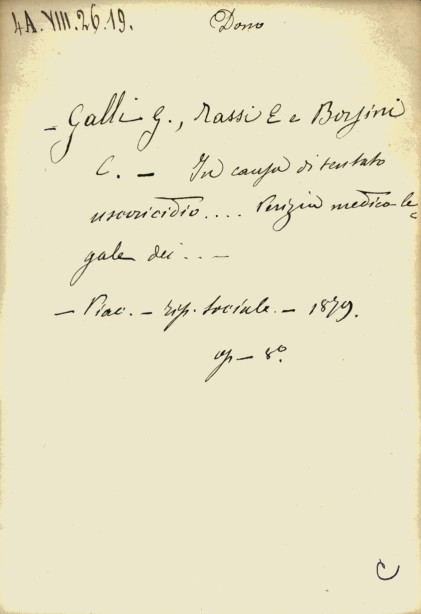 4A.VIII.26.19. Dono
- Galli G., Nassi E e Borsini
C. - In causa di tentato
uscoricidio.... Perizia medico le=
gale dei...-
- Piac. - tip. sociale. - 1879.
op - 8°.
C